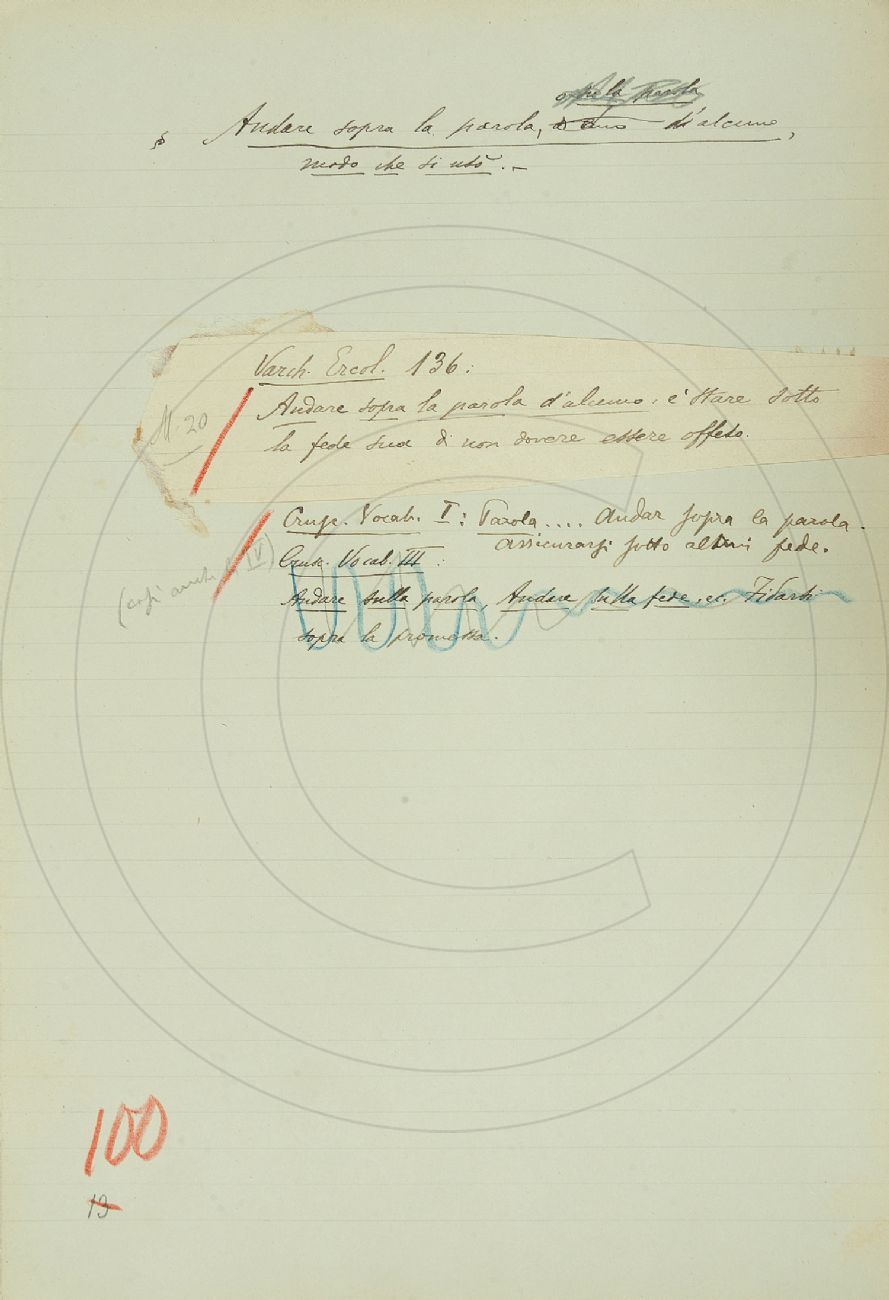 Andare sopra la parola, d'alcuno,
modo che si usò. –
Varch. Ercol. 136:
M. 20
Andare sopra la parola d'alcuno: è stare sotto
la fede sua di non dovere essere offeso.
Crusc. Vocab. I: Parola.... Andar sopra la parola.
Assicurarsi sotto altrui fede.
(così anche IV)
Crusc. Vocab. III:
Andare sulla parola, Andare sulla fede. ec. Fidarsi
sopra la promessa.
100
19